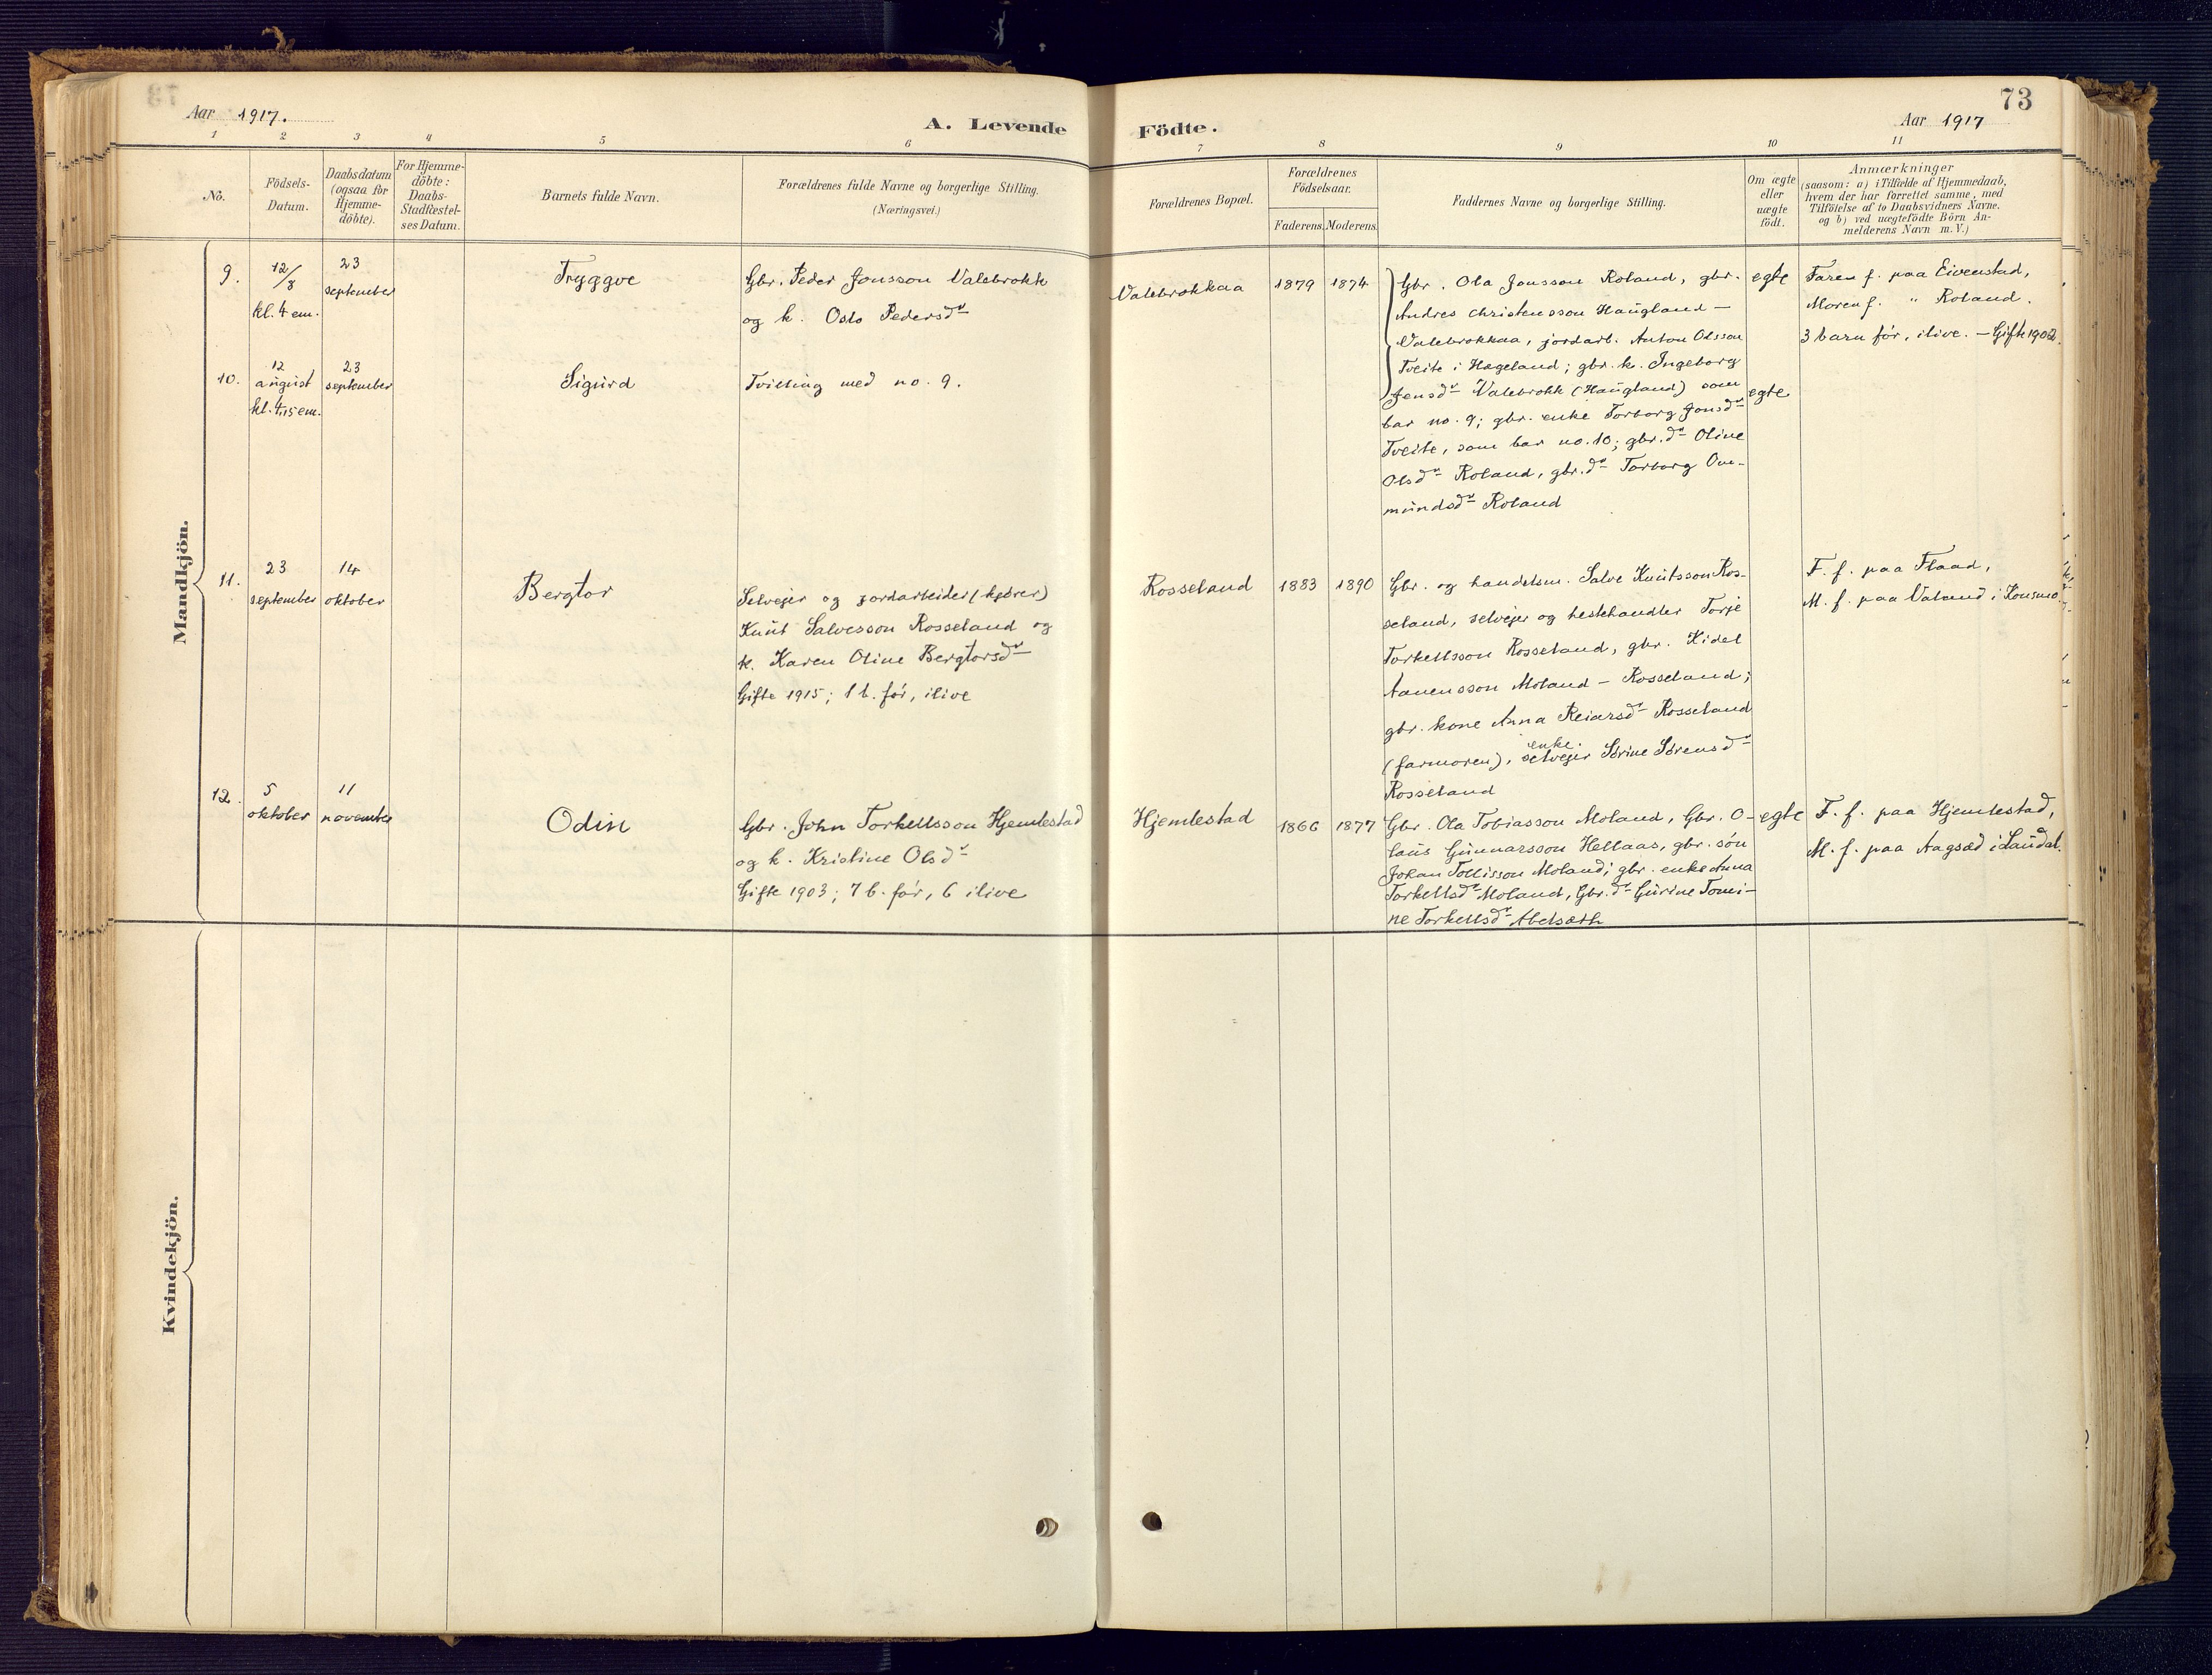 73
Aar 1917.
A. Levende Födte.
Aar 1917
1 2 3 4 5 6 7 8 9 10 11
No.
Födsels-
Datum.
Daabsdatum
(ogsaa for
Hjemme-
döbte).
For Hjemme-
döbte:
Daabs-
Stadfæstel-
ses Datum.
Barnets fulde Navn.
Forældrenes fulde Navne og borgerlige Stilling.
(Næringsvei.)
Forældrenes Bopæl.
Forældrenes
Födselsaar.
Faderens.
Moderens.
Faddernes Navne og borgerlige Stilling.
Om ægte
eller
uægte
födt.
Anmærkninger
(saasom: a) i Tilfælde af Hjemmedaab,
hvem der har forrettet samme, med
Tilföielse af to Daabsvidners Navne.
og b) ved uægtefödte Börn An-
melderens Navn m. V.)
Mandkjön.
9.
12/8
kl. 4 em.
23
september
Tryggve
Gbr. Peder Jonsson Valebrokk
og k. Oslo Pedersdr
Valebrokkaa
1879
1874
Gbr. Ola Jonsson Roland, gbr.
Andres Christensson Haugland –
Valebrokkaa, jordarb. Anton Olsson
Tveite i Hægeland; gbr. k. Ingeborg
Jensdr Valebrokk (Haugland) som
bar no. 9; gbr. enke Torborg Jonsdr
Tveite, som bar no. 10; gbr. dr Oline
Olsdr Roland, gbr. dr Torborg Om-
mundsdr Roland
egte
Faren f. paa Eivenstad,
Moren f. " Roland.
3 barn før, ilive. – Gifte 1902.
10.
12
august
kl. 4,15 em.
23
september
Sigurd
Tvilling med no. 9.
egte
11.
23
september
14
oktober
Bergtor
Selvejer og jordarbeider (kjører)
Knut Salvesson Rosseland og
k. Karen Oline Bergtorsdr
Gifte 1915; 1 b. før, ilive
Rosseland
1883
1890
Gbr. og handelsm. Salve Knutsson Ros-
seland, selvejer og hestehandler Torje
Torkellsson Rosseland, gbr. Kidel
Aanensson Moland – Rosseland;
gbr. kone Anna Reiarsdr Rosseland
(farmoren), selvejer enke. Sørine Sørensdr
Rosseland
F. f. paa Flaad,
M. f. paa Valand i Konsmo.
12.
5
oktober
11
november
Odin
Gbr. John Torkellsson Hjemlestad
og k. Kristine Olsdr
Gifte 1903; 7 b. før, 6 ilive
Hjemlestad
1866
1877
Gbr. Ola Tobiasson Moland, Gbr. O-
laus Gunnarsson Hellaas, gbr. søn
Johan Tollisson Moland; gbr. enke Anna
Torkellsdr Moland, Gbr. dr Gurine Tomi-
ne Torkellsdr Abelsæth
egte
F. f. paa Hjemlestad,
M. f. paa Aagsæd i Laudal.
Kvindekjön.